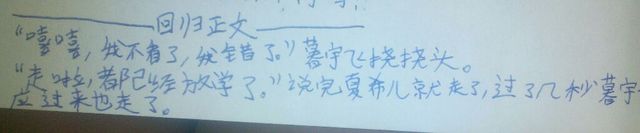 回归正文
“嘻嘻,我不看了,我错了。”暮宇飞挠挠头。
“走啦,都已经放学了。”说完夏希儿就走了,过了几秒暮宇
应过来也走了。